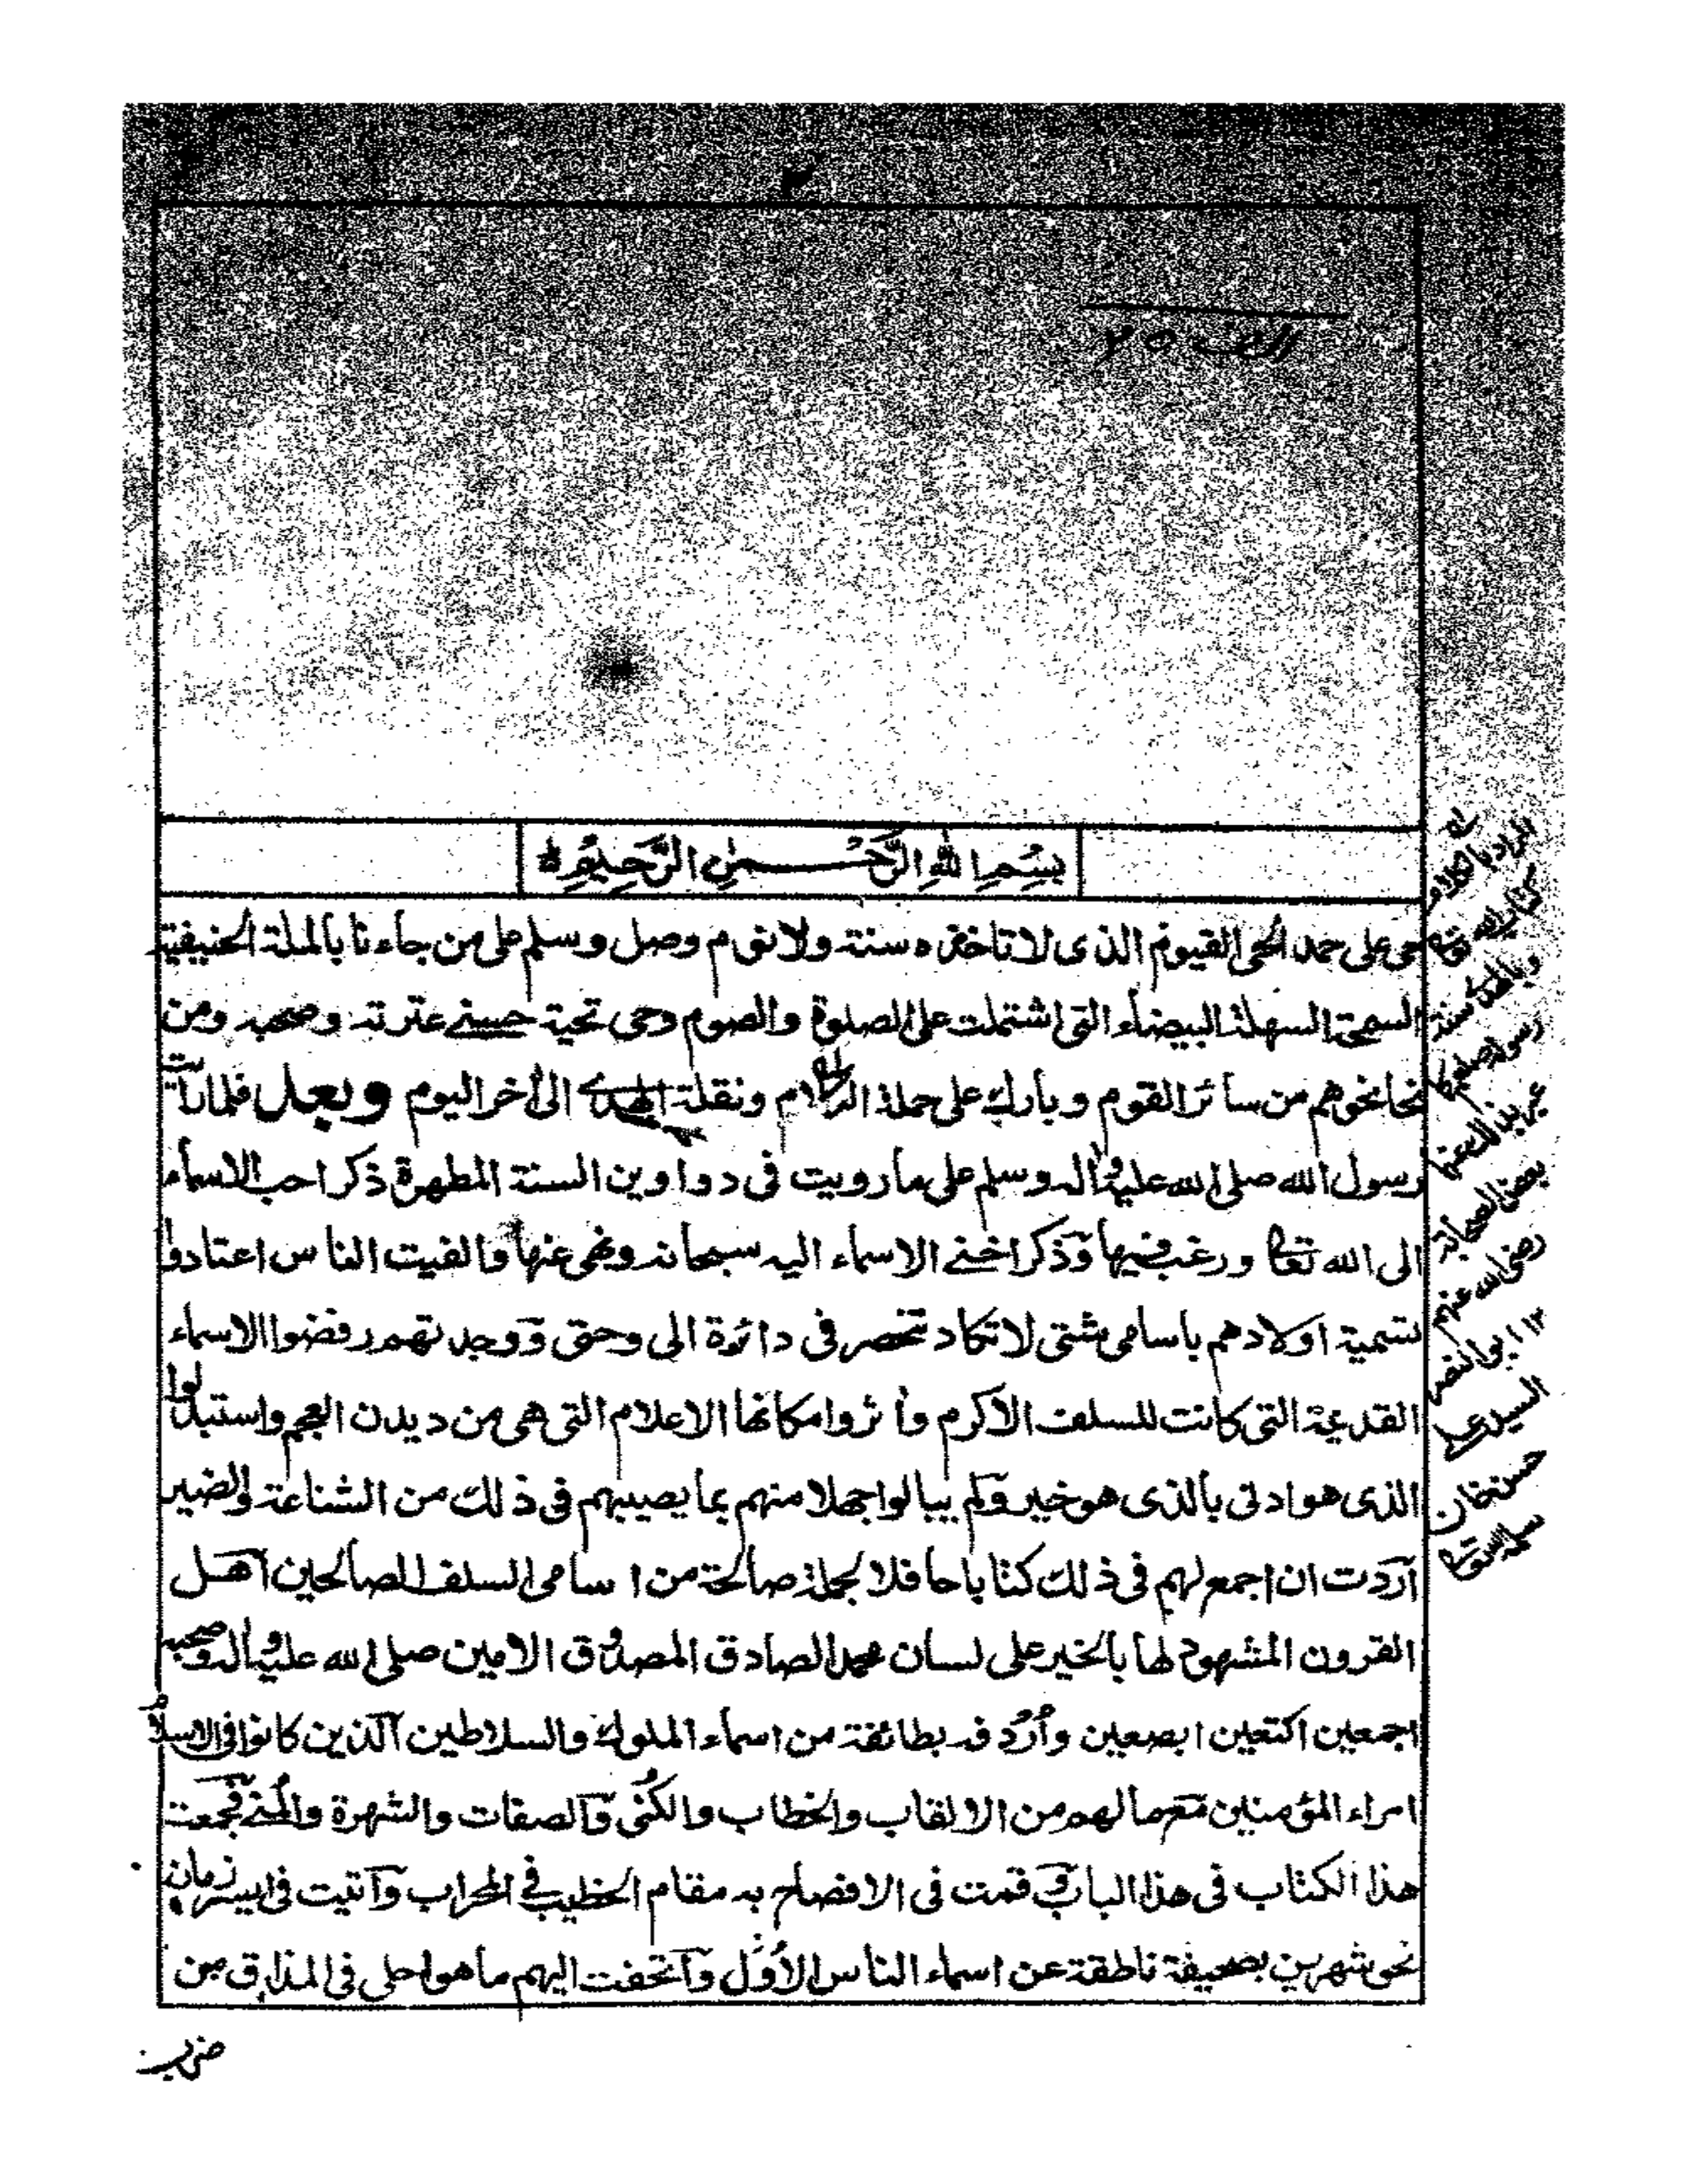 ٢
بِسْمِ اللهِ الرَّحْمٰنِ الرَّحِيْمِ
حي على حمد الحي القيوم الذى لا تاخذه سنة ولا نوم وصل وسلم على من جاءنا بالملة الحنيفية
السمحة السهلة البيضاء التى اشتملت على الصلوة والصوم وحى تحية حسنے عترته وصحبه ومن
نحا نحوهم من سائر القوم وبارك على حملة الكلام ونقلة الهدى الى أخر اليوم وبعد فلما رأيت
رسول الله صلى الله عليه واله وسلم على ما رويت فى دواوين السنة المطهرة ذكر احب الاسماء
الى الله تعالى ورغب فيها وَذكر اخنے الاسماء اليه سبحانه ونهى عنها والفيت الناس اعتادوا
تسمية اولادهم باسامى شتى لا تكاد تنحصر فى دائرة الى وحتى وَوجدتهم رفضوا الاسماء
القديمة التى كانت للسلف الاكرم وأثروا مكانها الاعلام التى هى من ديدن العجم واستبدلوا
الذى هو ادنى بالذى هو خير وَلم يبالوا جهلا منهم بما يصيبهم فى ذلك من الشناعة والضير
آرَدت ان اجمع لهم فى ذلك كتابا حافلا لجملة صالحة من اسامى السلف الصالحين آهل
القرون المشهود لها بالخير على لسان محمد الصادق المصدوق الامين صلى الله عليه واله وصحبه
اجمعين اكتعين ابصعين وأُرْدفه بطائفة من اسماء الملوك والسلاطين آلذين كانوا فى الاسلام
امراء المؤمنين مَع ما لهم من الالقاب والخطاب والكُنٰى وَآلصفات والشهرة والمُنے فجمعت
هذا الكتاب فى هذا الباب وَقمت فى الافصاح به مقام الخطيب فے المحراب وَآتيت فى ايسر زمان
نحو شهرين بصحيفة ناطقة عن اسماء الناس الأُوَل وَآتحفت اليهم ما هو احلى فى المذاق من
ضرب
المراد بالكلام
كتاب الله تعالى
وبالهدى سنة
رسوله صلعم كما
عبر بذلك عنهما
بعض الصحابة
رضى الله عنهم
١٢ ابو النصر
السيد على
حسن خان
سلمه الله تعالى